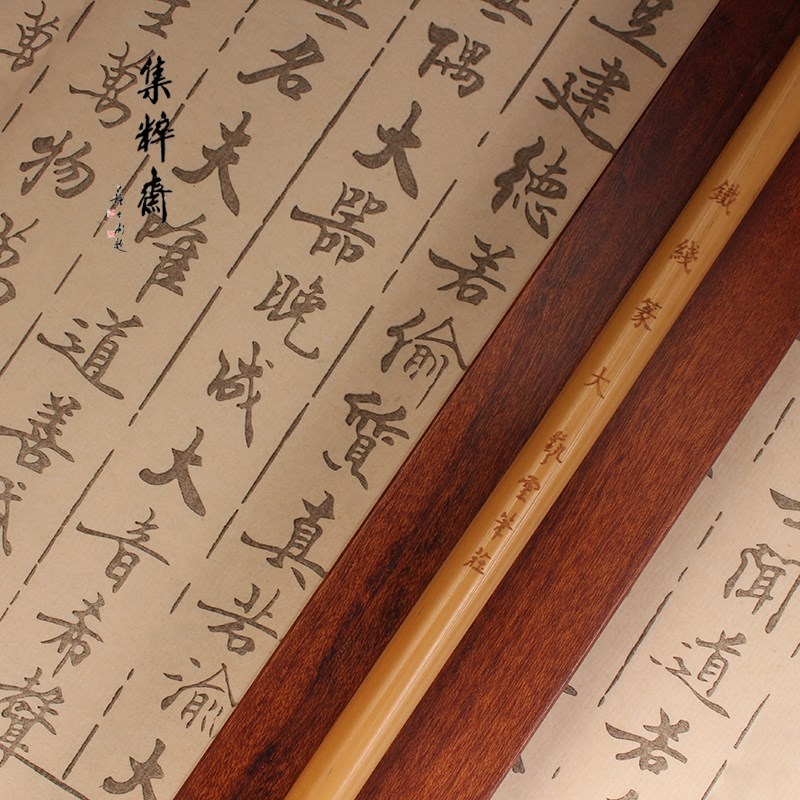 集粹齋
鐵綫篆 大 藝雲筆莊
聞道若
建德若偷質真若渝大
隅大器晚成大音希聲
無名夫唯道善
生萬物
萬